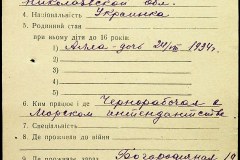 Николаевской обл.
4. Національність Украинка
5. Родинний стан
при ньому діти до 16 років:
1) Алла - дочь 24/VIII 1934г.
2)
3)
4)
5)
6. Ким працює і де Чернорабочая в
Морском интенданстве.
7. Спеціальність
8. Де працював до війни
9. Де проживає зараз Богородичная 19